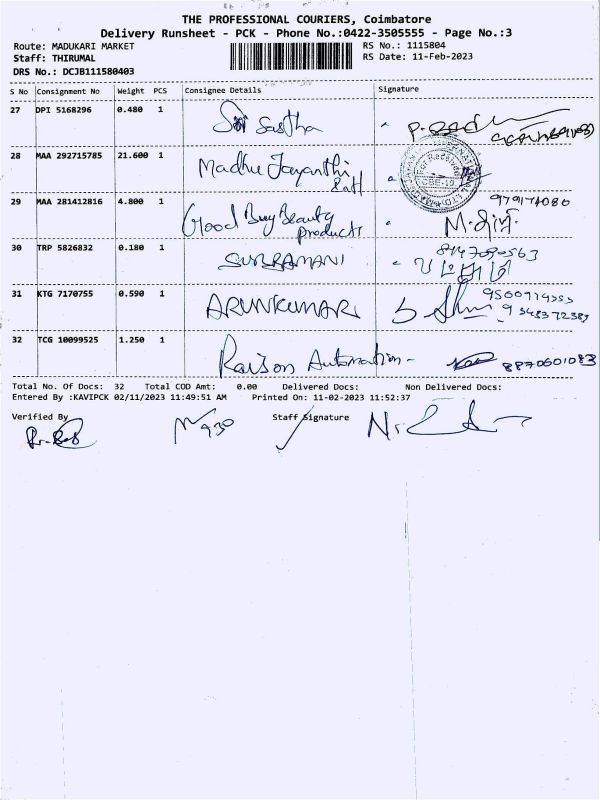 THE PROFESSIONAL COURIERS, Coimbatore
Delivery Runsheet - PCK - Phone No.:0422-3505555 - Page No.:3
Route: MADUKARI MARKET RS No.: 1115804
Staff: THIRUMAL RS Date: 11-Feb-2023
DRS No.: DCJB111580403
S No Consignment No Weight PCS Consignee Details Signature
27 DPI 5168296 0.480 1 Sri Sastha
28 MAA 292715785 21.600 1 Madhu Jayanthi
For Received
29 MAA 281412816 4.800 1 Good Buy Beauty
products
30 TRP 5826832 0.180 1 SUBRAMANI
31 KTG 7170755 0.590 1 ARUNKUMAR
32 TCG 10099525 1.250 1 Raison Automation - 8870601083
Total No. Of Docs: 32 Total COD Amt: 0.00 Delivered Docs: Non Delivered Docs:
Entered By :KAVIPCK 02/11/2023 11:49:51 AM Printed On: 11-02-2023 11:52:37
Verified By Staff Signature